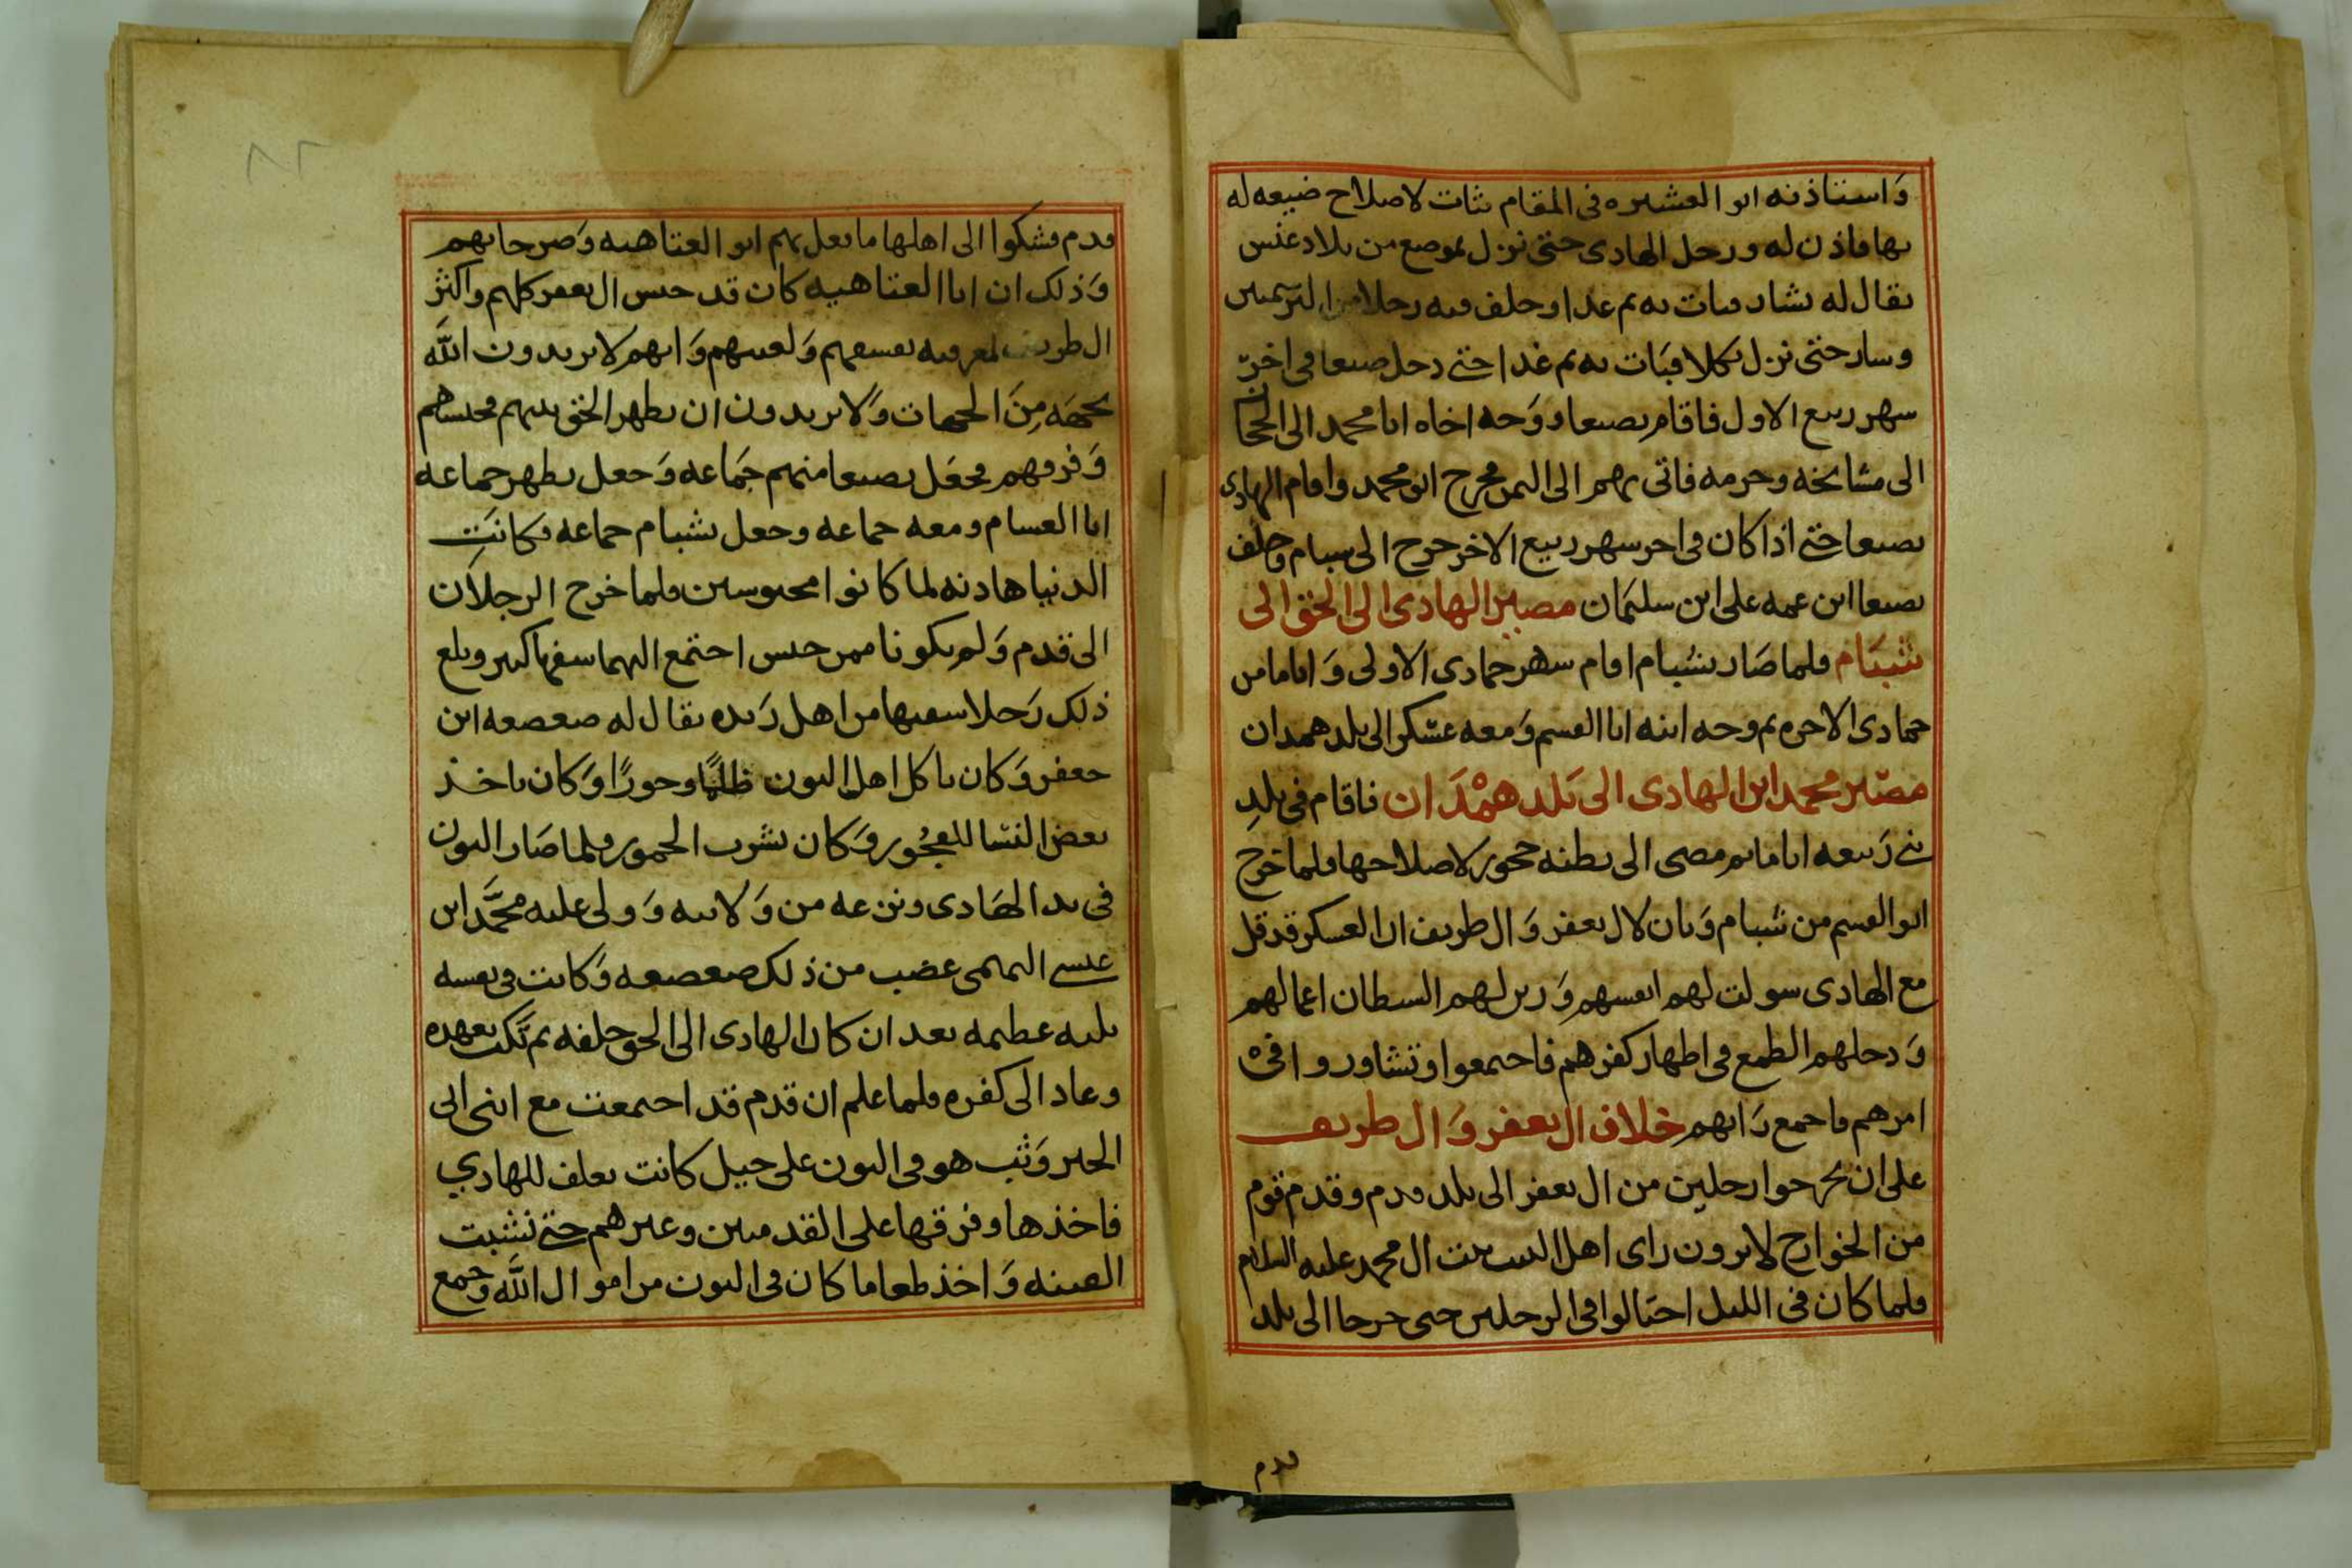 واستاذنه ابو العشيره فى المقام بثات لاصلاح ضيعه له
بها فاذن له ورحل الهادى حتى نزل بموضع من بلاد عنس
يقال له بشار فبات به ثم غدا وخلف فيه رجلا من
وسار حتى نزل بكلا فبات به ثم غدا حتى دخل صنعا فى اخر
شهر ربيع الاول فاقام بصنعا ووجه اخاه ابا محمد الى الحجاز
الى مشايخه وحرمه فاتى بهم الى اليمن فخرج ابو محمد واقام الهادى
بصنعا حتى اذا كان فى اخر شهر ربيع الاخر خرج الى شبام وخلف
بصنعا ابن عمه على ابن سليمان مصير الهادى الى الحق الى
شبام فلما صار بشبام اقام شهر جمادى الاولى واياما من
جمادى الاخره ثم وجه ابنه ابا القسم ومعه عسكر الى بلد همدان
مصير محمد ابن الهادى الى بلد همدان فاقام فى بلد
بنى ربيعه اياما ثم مضى الى بطنه حجور لاصلاحها فلما خرج
ابو القسم من شبام وبان لال يعفر وال طريف ان العسكر قد قل
مع الهادى سولت لهم انفسهم وزين لهم الشيطان اعمالهم
ودخلهم الطمع فى اظهار كفرهم فاجتمعوا وتشاوروا فى
امرهم فاجمع رايهم خلاف ال يعفر وال طريف
على ان يخرجوا رجلين من ال يعفر الى بلد قدم وقدم قوم
من الخوارج لا يرون راى اهل البيت بيت ال محمد عليه السلام
فلما كان فى الليل احتالوا فى الرجلين حتى خرجا الى بلد
قدم
قدم فشكوا الى اهلها ما فعل بهم ابو العتاهيه وصرخا بهم
وذلك ان ابا العتاهيه كان قد حبس ال يعفر كلهم واكثر
ال طريف لمعرفته بفسقهم ولعبهم وانهم لا يريدون الله
بجهه من الجهات ولا يريدون ان يظهر الحق بينهم فحبسهم
وفرقهم فجعل بصنعا منهم جماعه وجعل بظهر جماعه
ابا الغسام ومعه جماعه وجعل بشبام جماعه فكانت
الدنيا هادنه لما كانوا محبوسين فلما خرج الرجلان
الى قدم ولم يكونا ممن حبس اجتمع اليهما سفها كبير وبلغ
ذلك رجلا سفيها من اهل ريده يقال له صعصعه ابن
جعفر وكان ياكل اهل البون ظلما وجورا وكان ياخذ
بعض النسا للفجور وكان يشرب الخمور فلما صار البون
فى يد الهادى ونزعه من ولايته وولى عليه محمد ابن
عيسى التميمى غضب من ذلك صعصعه وكانت فى نفسه
بليه عظيمه بعد ان كان الهادى الى الحق حلفه ثم نكث بعهده
وعاد الى كفره فلما علم ان قدم قد اجتمعت مع ابنى ابى
الخير وثب هو فى البون على خيل كانت تعلف للهادي
فاخذها وفرقها على القدميين وغيرهم حتى نشبت
الفتنه واخذ طعاما كان فى البون من اموال الله وجمع